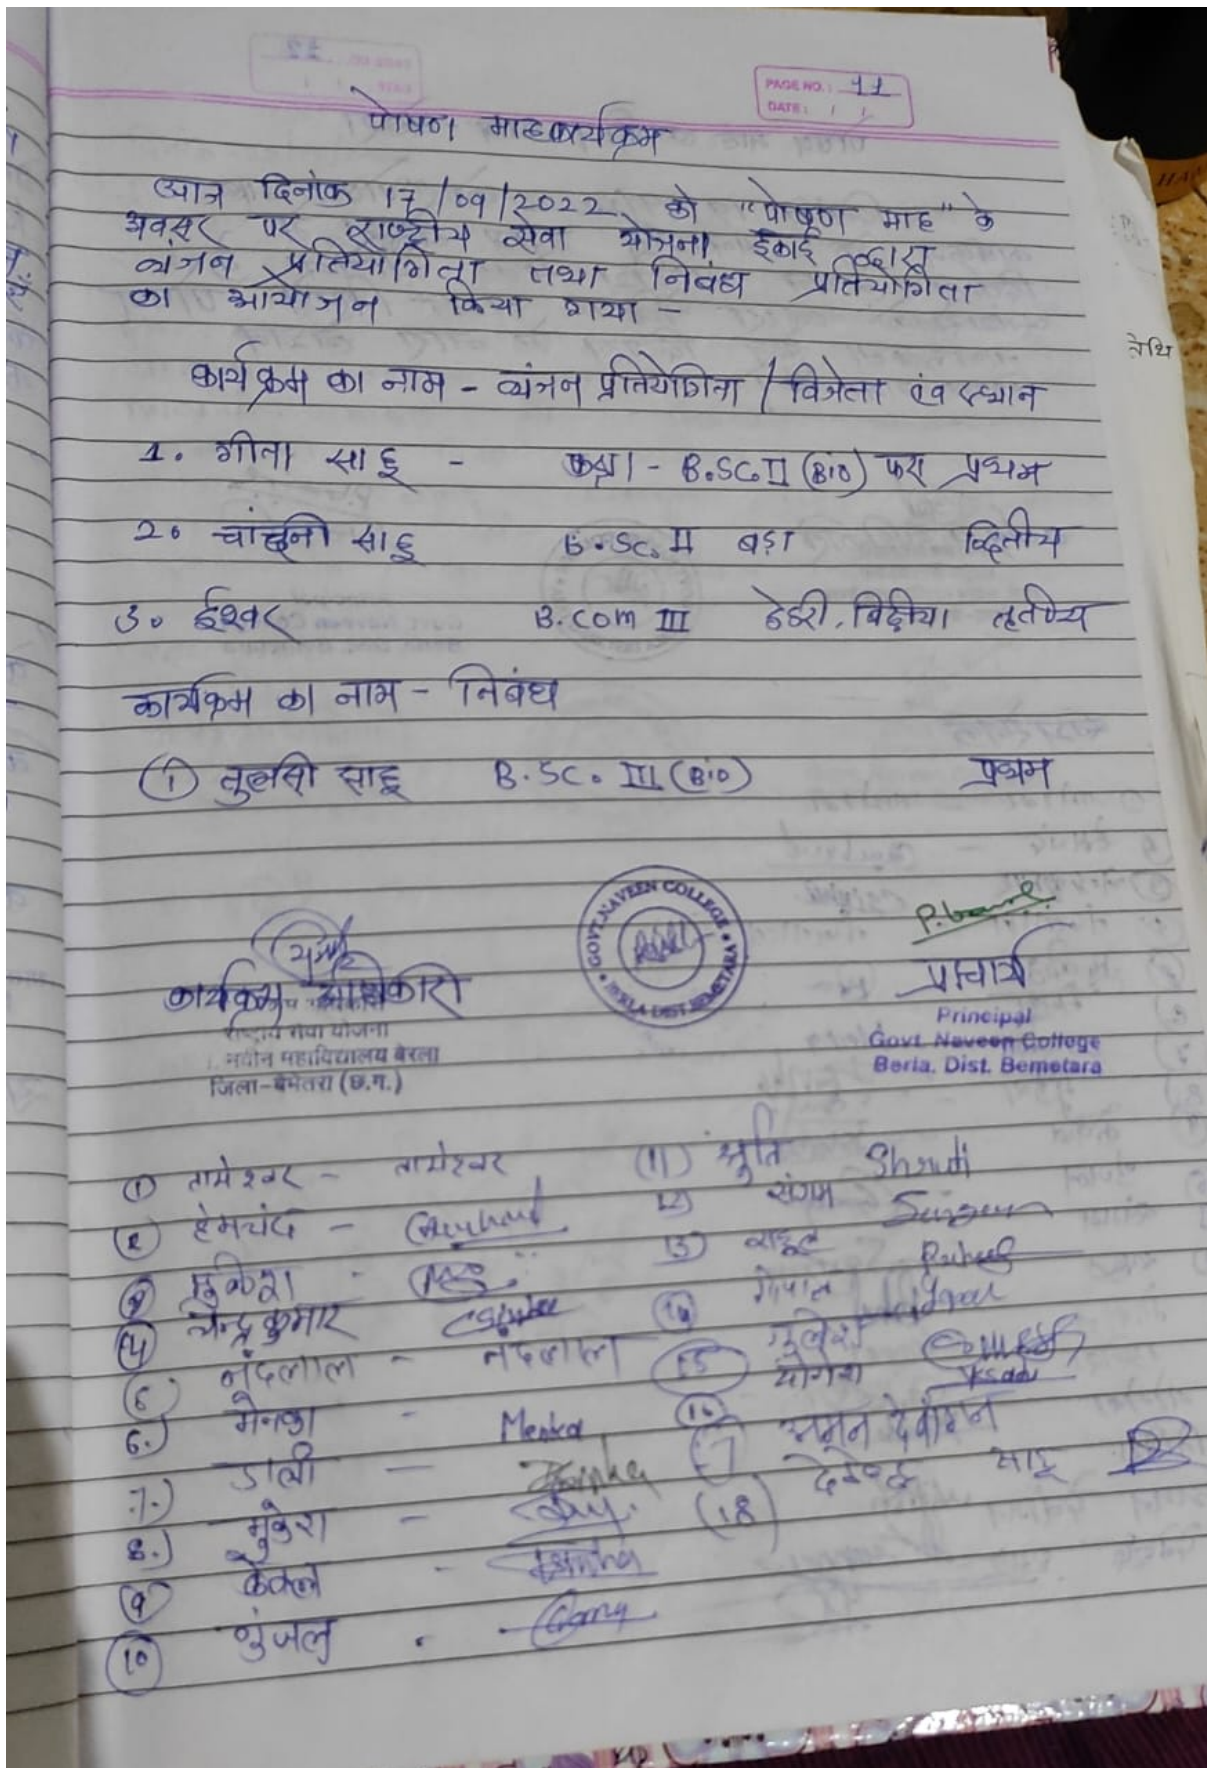 PAGE NO.: 41
DATE: / /
पोषण माह कार्यक्रम
आज दिनांक 17/09/2022 को "पोषण माह" के
अवसर पर राष्ट्रीय सेवा योजना इकाई द्वारा
व्यंजन प्रतियोगिता तथा निबंध प्रतियोगिता
का आयोजन किया गया -
कार्यक्रम का नाम - व्यंजन प्रतियोगिता / विजेता एंव स्थान
1. गीता साहू - कक्षा - B.SC. II (Bio) फरा प्रथम
2. चांदनी साहू B.SC. II बड़ा द्वितीय
3. ईश्वर B.COM III
कार्यक्रम का नाम - निबंध
(1) तुलसी साहू B.SC. III (Bio) प्रथम
GOVT. NAVEEN COLLEGE
BERLA DIST BEMETARA
कार्यक्रम अधिकारी
राष्ट्रीय सेवा योजना
नवीन महाविद्यालय बेरला
जिला-बेमेतरा (छ.ग.)
प्राचार्य
Principal
Govt. Naveen College
Berla. Dist. Bemetara
(1) तामेश्वर - तामेश्वर
(2) हेमचंद -
(3) मुकेश -
(4) चन्द्र कुमार
(5) नंदलाल - नंदलाल
6.) मेनका - Menka
7.) डाली -
8.) मुकेश -
(9) केवल -
(10)
(11) श्रुति Shruti
12) संगम
13) राहुल Rahul
(14) गोपाल
(15) गुलेश
(16) योगेश
17 अमन देवांगन
(18) देवेन्द्र साहू